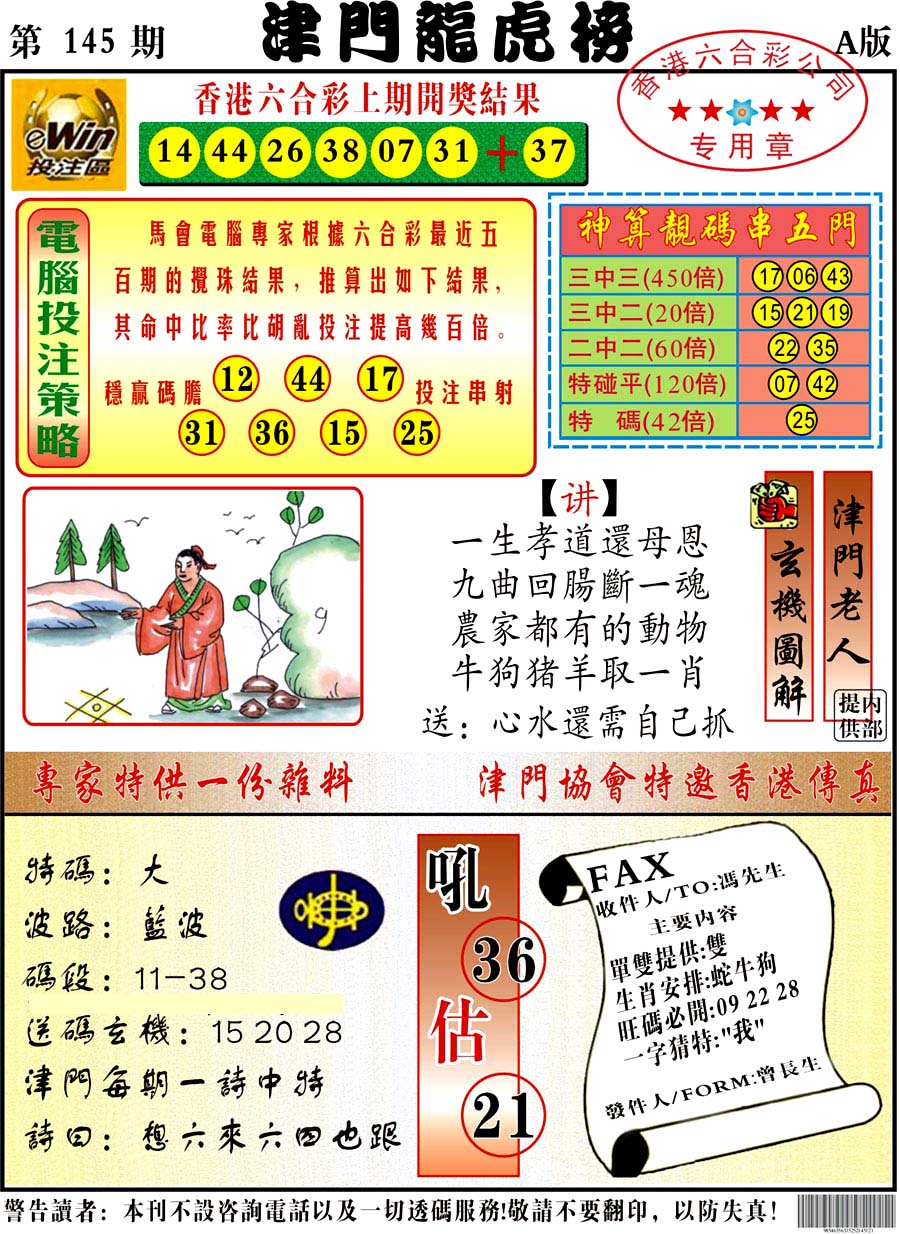 第 145 期
津門龍虎榜
A版
香港六合彩公司
专用章
eWin
投注區
香港六合彩上期開獎結果
14 44 26 38 07 31 + 37
電腦投注策略
馬會電腦專家根據六合彩最近五
百期的攪珠結果，推算出如下結果，
其命中比率比胡亂投注提高幾百倍。
穩贏碼膽 12 44 17 投注串射
31 36 15 25
神算靚碼串五門
三中三(450倍) 17 06 43
三中二(20倍) 15 21 19
二中二(60倍) 22 35
特碰平(120倍) 07 42
特 碼(42倍) 25
【讲】
一生孝道還母恩
九曲回腸斷一魂
農家都有的動物
牛狗猪羊取一肖
送：心水還需自己抓
玄機圖解
津門老人
内部提供
專家特供一份雜料
津門協會特邀香港傳真
特碼：大
波路：藍波
碼段：11-38
送碼玄機：15 20 28
津門每期一詩中特
詩曰：想六來六四也跟
吼
36
估
21
FAX
收件人/TO:馮先生
主要内容
單雙提供:雙
生肖安排:蛇牛狗
旺碼必開:09 22 28
一字猜特:"我"
發件人/FORM:曾長生
警告讀者：本刊不設咨詢電話以及一切透碼服務!敬請不要翻印，以防失真！